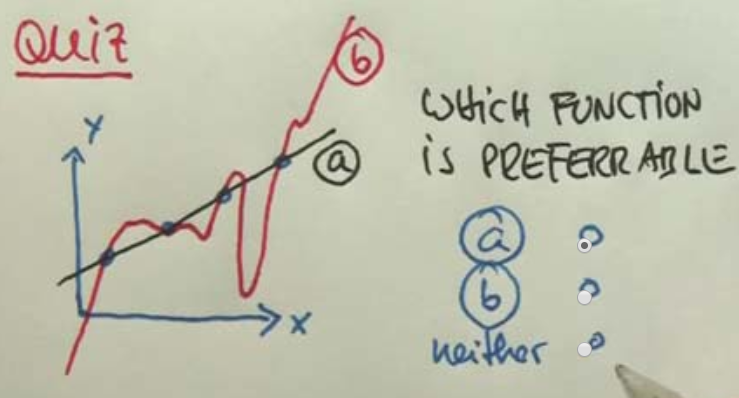 Quiz
b
Y
a
X
WHICH FUNCTION
iS PREFERRABLE
a
b
neither